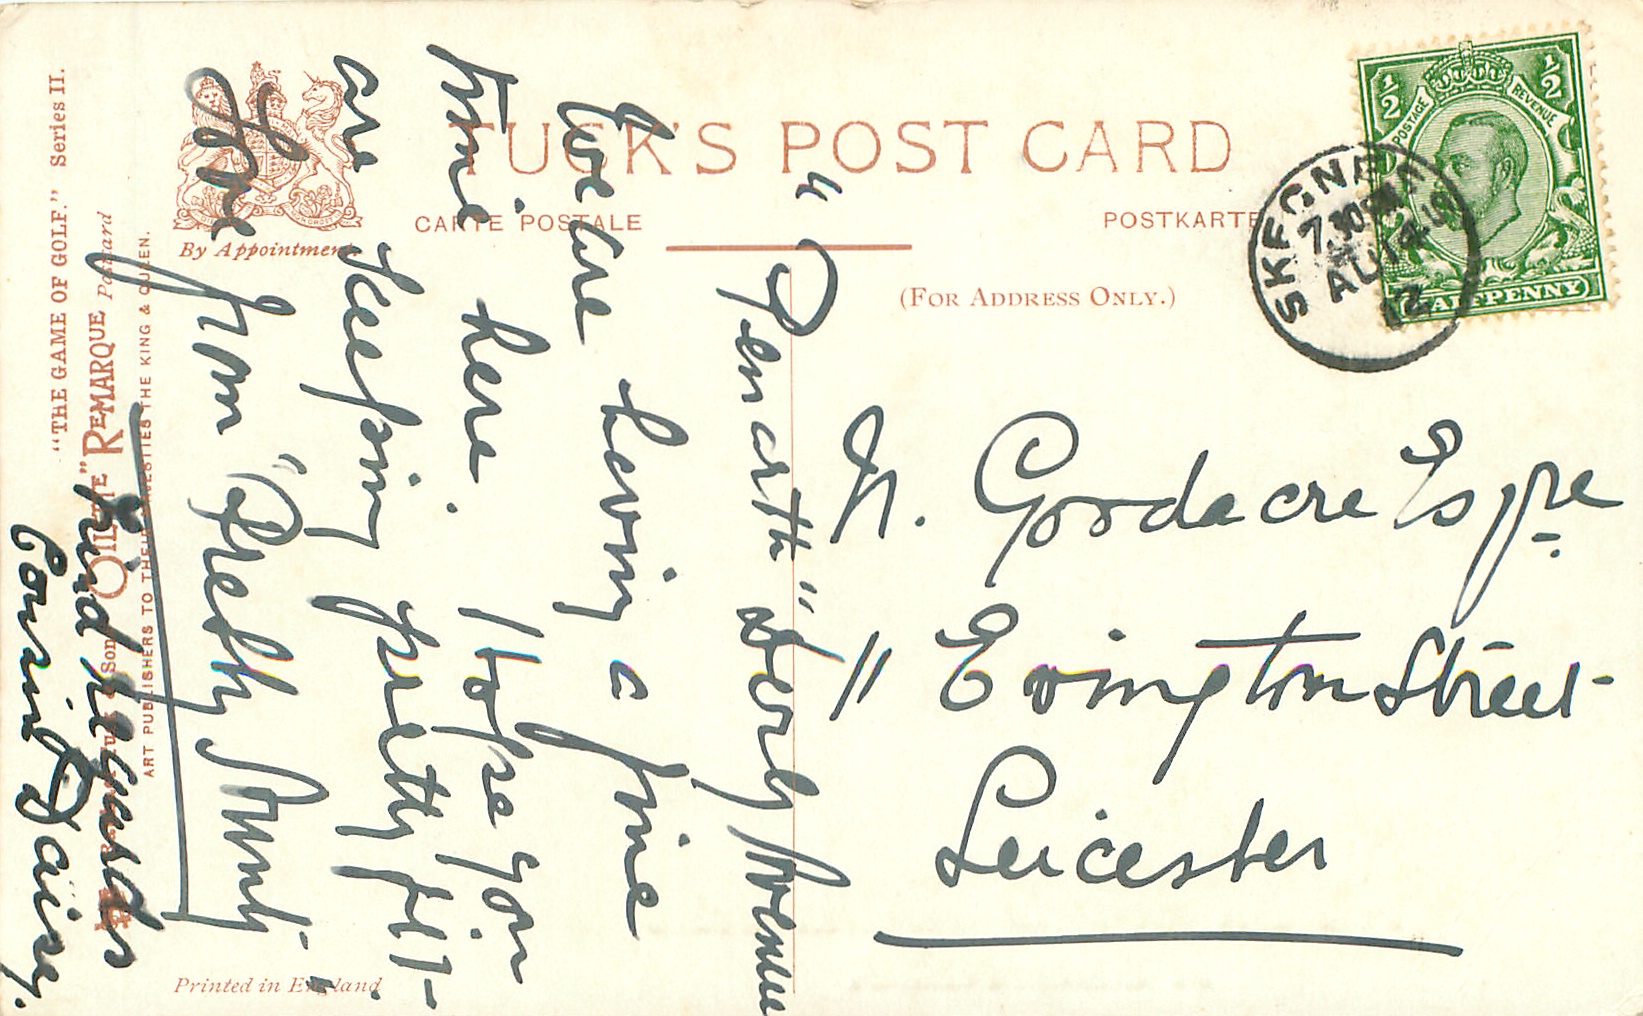 TUCK'S POST CARD
CARTE POSTALE
POSTKARTE
By Appointment.
(FOR ADDRESS ONLY.)
½ ½
POSTAGE REVENUE
HALFPENNY
SKEGNESS
7.30PM
AU 14
12
"THE GAME OF GOLF." Series II.
"OILETTE" REMARQUE Postcard
ART PUBLISHERS TO THEIR MAJESTIES THE KING & QUEEN.
Printed in England
"Penarth" Avenue
We are having a fine
time here. I hope you
are keeping pretty fit
Love
from "Pretty Aunt".
Kind regards
Cousin Daisy.
Goodacre Esqre
11 Evington Street
Leicester